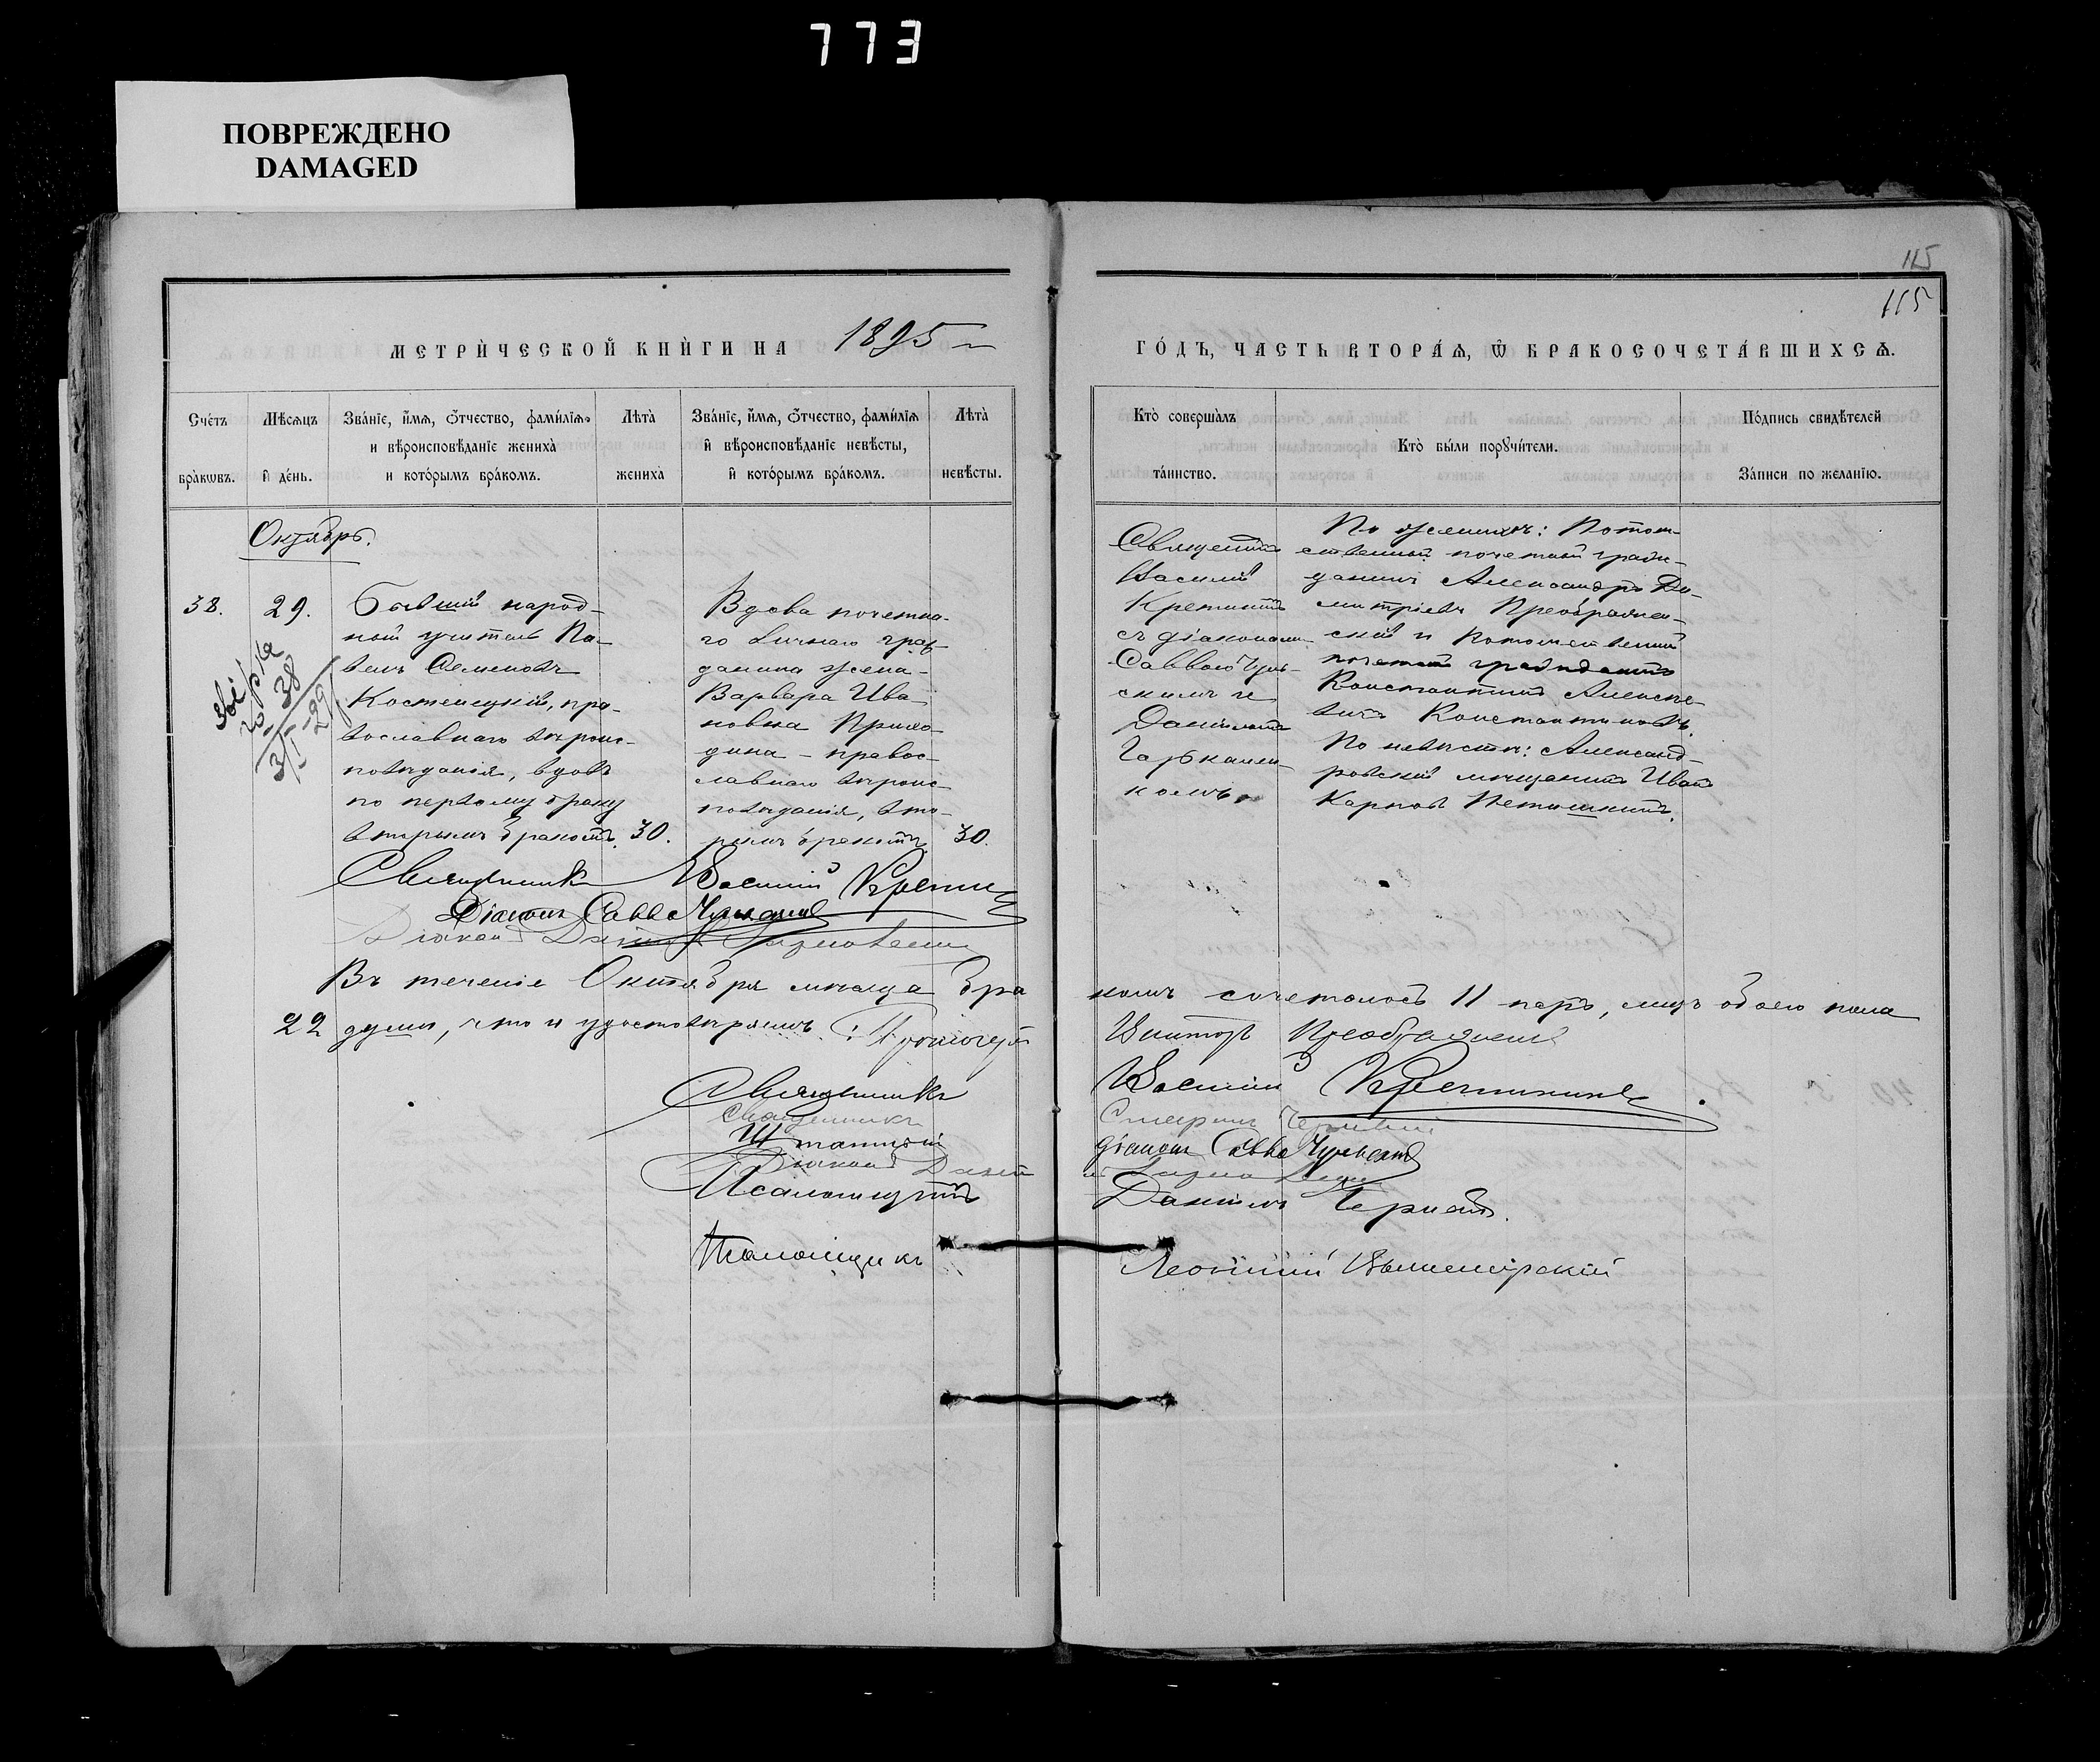 773
ПОВРЕЖДЕНО
DAMAGED
115
115
МЕТРИ́ЧЕСКОЙ КНИ́ГИ НА 1895
ГО́ДЪ, ЧАСТЬ ВТОРА́Я, Ѡ БРАКОСОЧЕТА́ВШИХСѦ.
Сче́тъ бра́кѡвъ.
Мѣ́сѧцъ и҆ де́нь.
Зва́нїе, и҆́мѧ, ѻ҆́тчество, фами́лїѧ
и вѣроисповѣ́данїе жениха̀
и кото́рымъ бра́комъ.
Лѣта̀ жениха̀
Зва́нїе, и҆́мѧ, ѻ҆́тчество, фами́лїѧ
и҆ вѣроисповѣ́данїе невѣ́сты,
и҆ кото́рымъ бра́комъ.
Лѣта̀ невѣ́сты.
Кто̀ соверша̀лъ та́инство.
Кто̀ бы́ли порꙋчи́тели.
По́дпись свидѣ́телей
За́писи по жела́нїю.
Октябрь.
38.
29.
Бывшій народ-
ный учитель Па-
велъ Семеновъ
Костецкій, пра-
вославнаго вѣроис-
повѣданія, вдовъ
по первому браку
вторымъ бракомъ.
30.
Вдова почетна-
го личнаго граж-
данина жена
Варвара Ива
новна
дина - правос-
лавнаго вѣроис-
повѣданія, вто-
рымъ бракомъ.
30.
Священникъ
Василій
Кретининъ
съ діаконами
Саввою Чуль-
скимъ и
Даніиломъ
По женихѣ: Потом-
ственный почетный граж-
данинъ Александръ Ди-
митріевъ Преображен-
скій и потомственный
почетный гражданинъ
Константинъ Алексѣе-
вичъ Константиновъ.
По невѣстѣ: Александ-
ровскій мѣщанинъ Иванъ
Карповъ
Священникъ Василій Кретинин
Діаконъ Савва
Діаконъ
Въ теченіе Октября мѣсяца бра
комъ сочеталось 11 паръ, лицъ обоего пола
22 души, что и удостовѣряемъ: Протоіерей
Викторъ Преображенскій
Священникъ
Василій Кретининъ
Священникъ
Штатный
діаконъ Савва
Діаконъ
Псаломщикъ
Даніилъ
Псаломщикъ